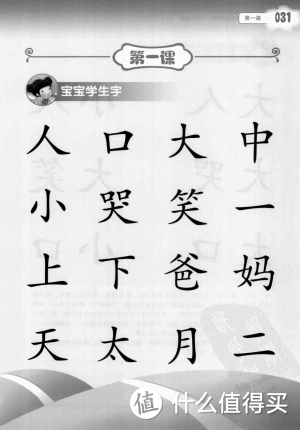 第一课 031
第一课
宝宝学生字
人 口 大 中
小 哭 笑 一
上 下 爸 妈
天 太 月 二
值 什么值得买